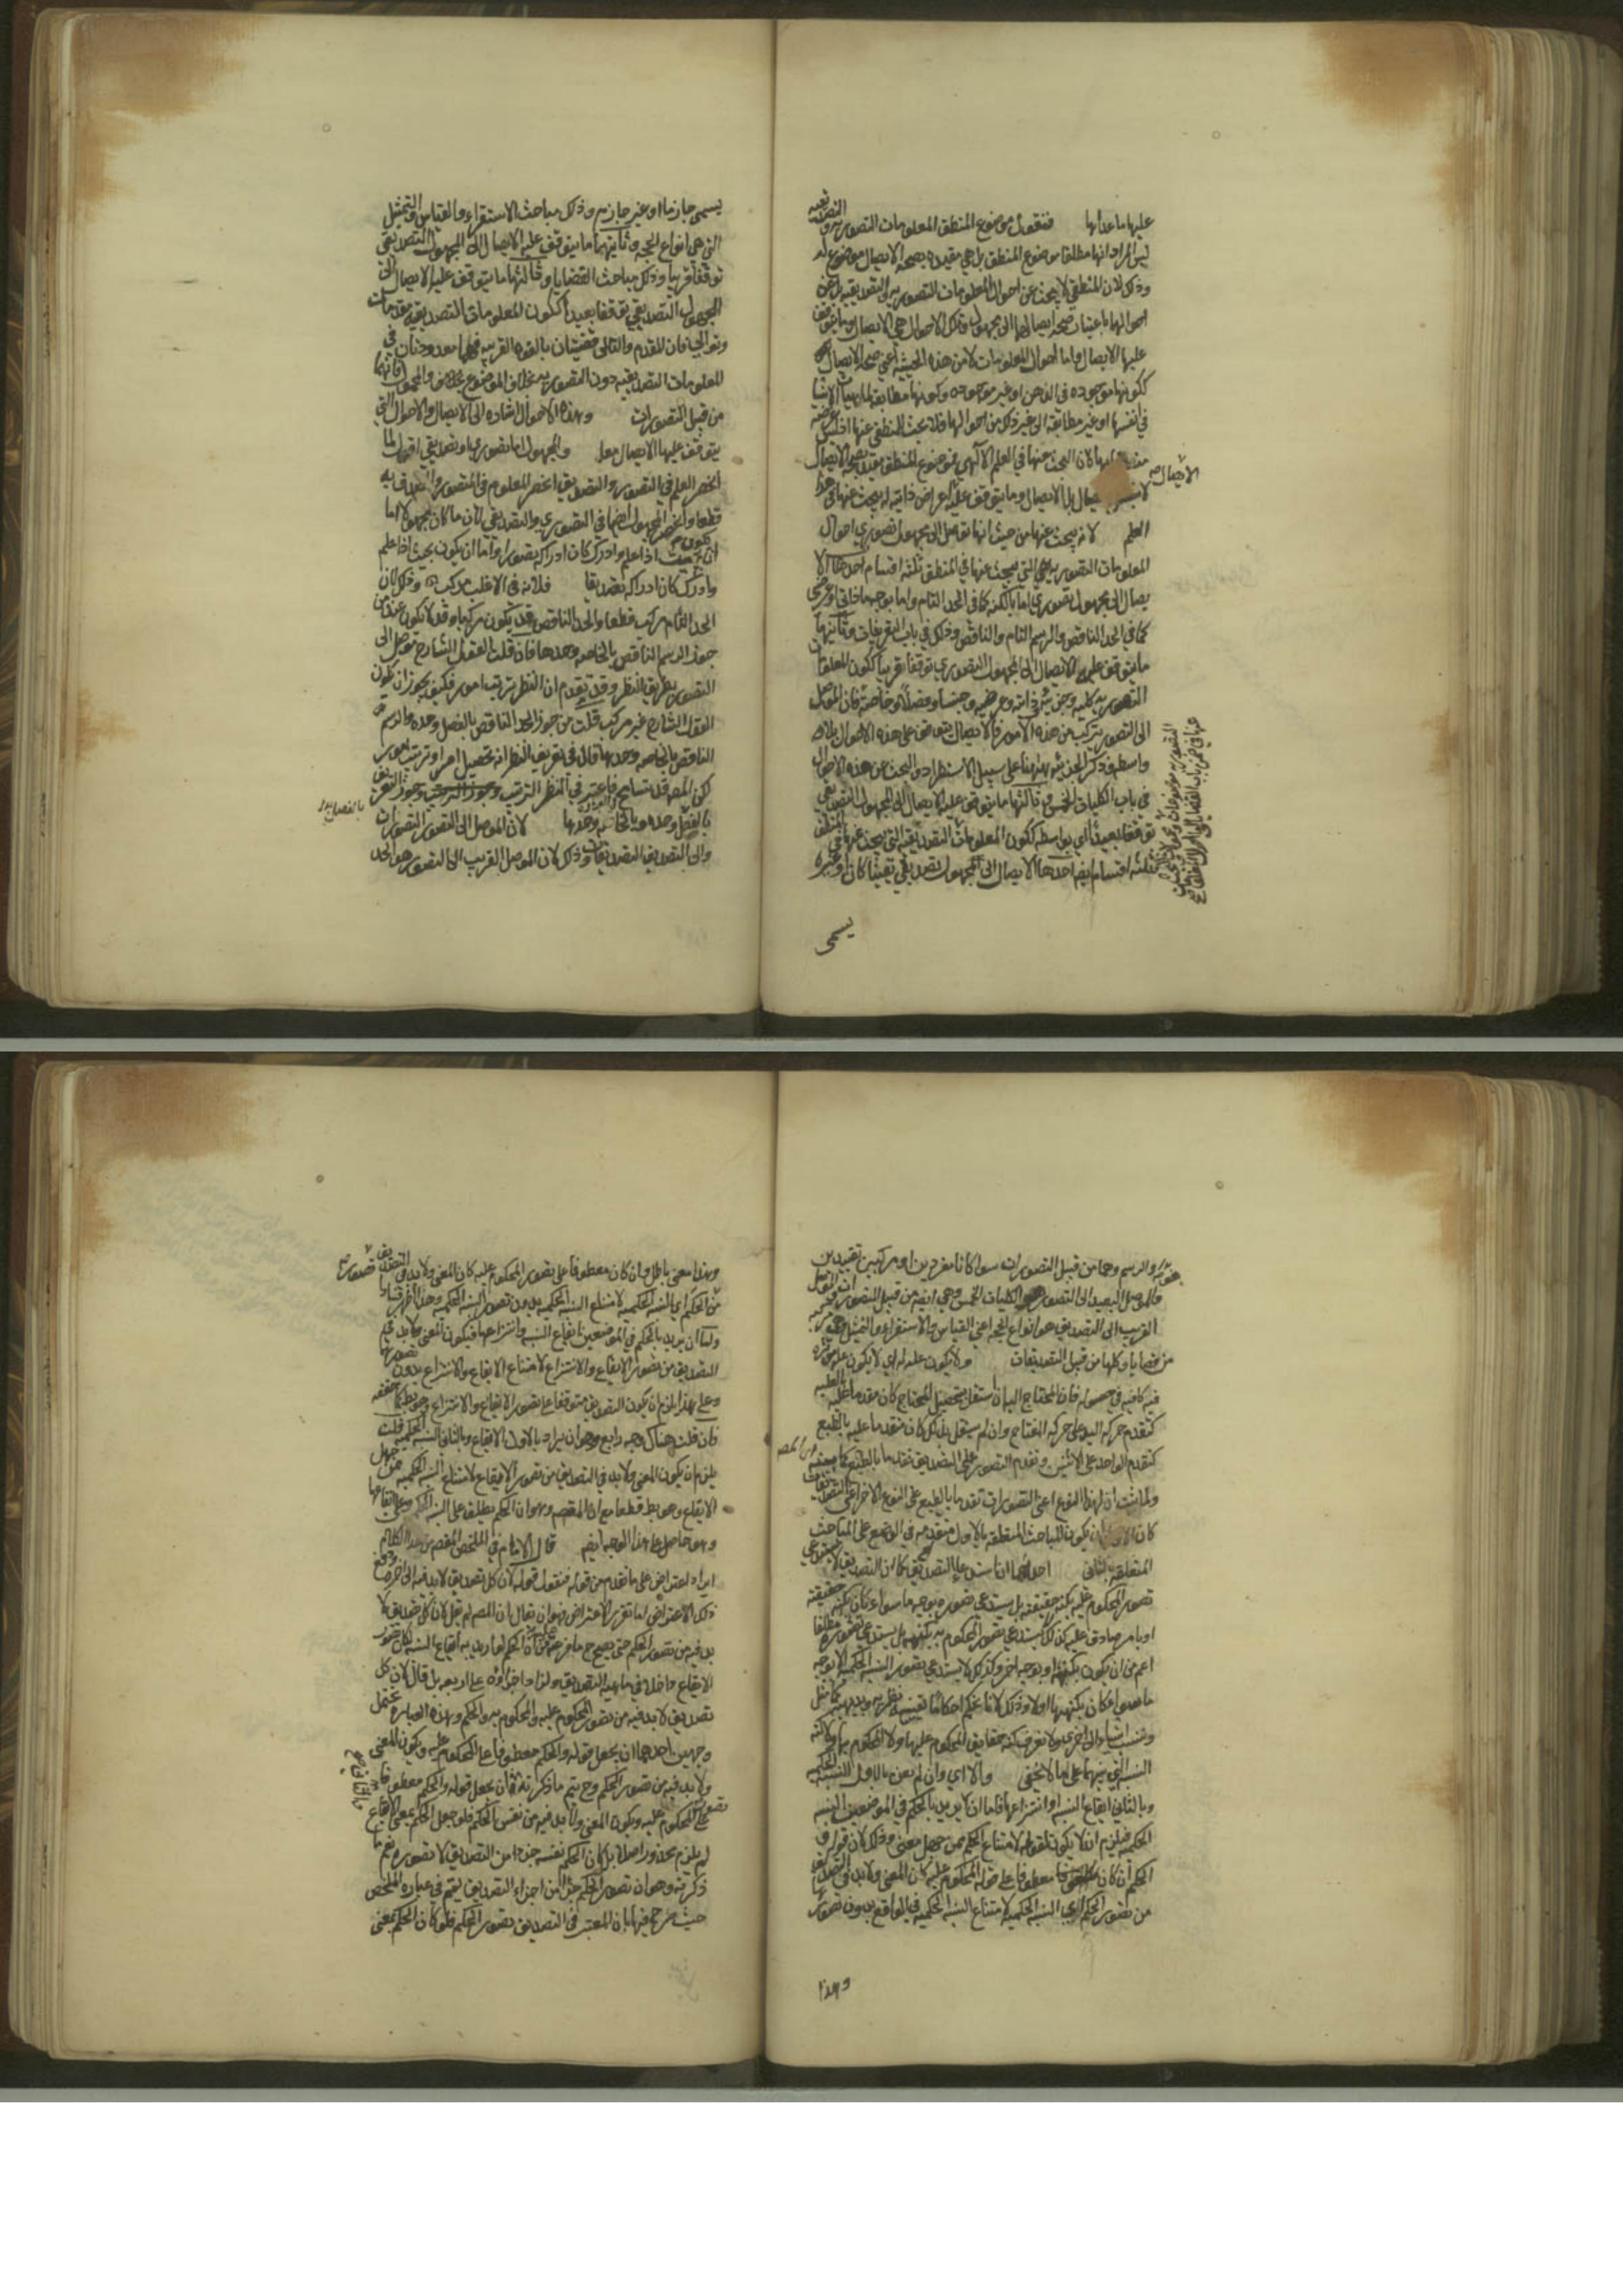 عليها ما عداها فنقول موضوع المنطق المعلومات التصوريه والتصديقيه
ليس المراد انها مطلقا موضوع المنطق بل هي مقيده بصحه الايصال موضوع له
وذلك لان المنطقي لا يبحث عن احوال المعلومات التصوريه والتصديقيه بل عن
احوالها باعتبار صحه ايصالها الى مجهول وتلك الاحوال هي الايصال وما يتوقف
عليها الايصال واما احوال المعلومات لا من هذه الحيثيه اعني صحه الايصال
ككونها موجوده في الذهن او غير موجوده وكونها مطابقه لماهيات الاشيا
في انفسها او غير مطابقه الى غير ذلك من احوالها فلا يبحث المنطقي عنها اذ ليس غرضه
لان البحث عنها في العلم الالهي فموضوع المنطق مقيد بصحه الايصال
لا بنفس الايصال بل الايصال وما يتوقف عليه اعراض ذاتيه له يبحث عنها في هذا
العلم لانه يبحث عنها من حيث انها توصل الى مجهول تصوري احوال
المعلومات التصوريه التي يبحث عنها في المنطق ثلثه اقسام احدها الا
يصال الى مجهول تصوري اما بالكنه كما في الحد التام واما بوجه ما ذاتي او عرضي
كما في الحد الناقص والرسم التام والناقص وذلك في باب التعريفات وثانيها
ما يتوقف عليه الايصال الى المجهول التصوري توقفا قريبا ككون المعلومات
التصوريه كليه وجزئيه وذاتيه وعرضيه وجنسا وفصلا وخاصه فان الموصل
الى التصور يتركب من هذه الامور فالايصال يتوقف على هذه الاحوال بلا
واسطه وذكر الجزئيه ههنا على سبيل الاستطراد والبحث عن هذه الاحوال
في باب الكليات الخمس وثالثها ما يتوقف عليه الايصال الى المجهول التصديقي
توقفا بعيدا اي بواسطه ككون المعلومات التصديقيه التي يبحث عنها في المنطق
ثلثه اقسام ايضا احدها الايصال الى المجهول تصديقي يقينيا كان او غيره
يسمى
يسمى جازما او غير جازم وذلك مباحث الاستقراء والقياس والتمثيل
التي هي انواع الحجه وثانيها ما يتوقف عليه الايصال الى المجهول التصديقي
توقفا قريبا وذلك مباحث القضايا وثالثها ما يتوقف عليه الايصال الى
المجهول التصديقي توقفا بعيدا ككون المعلومات التصديقيه مقدمات
وتوالي فان المقدم والتالي قضيتان بالقوه القريبه فهما معدودتان في
المعلومات التصديقيه دون التصوريه بخلاف الموضوع والمحمول فانهما
من قبيل التصورات وهذه الاحوال اشاره الى الايصال والاحوال التي
يتوقف عليها الايصال والمجهول اما تصوري او تصديقي اقول لما
انحصر العلم في التصور والتصديق انحصر المعلوم في المتصور والمصدق به
قطعا وانحصر المجهول ايضا في التصوري والتصديقي لان ما كان مجهولا اما
ان يكون بحيث اذا علم وادرك كان ادراكه تصورا واما ان يكون بحيث اذا علم
وادرك كان ادراكه تصديقا فلانه في الاغلب مركب وذلك لان
الحد التام مركب قطعا والحد الناقص قد يكون مركبا وقد لا يكون عند من
جوز الرسم الناقص بالخاصه وحدها فان قلت القول الشارح موصل الى
التصور بطريق النظر وقد تقدم ان النظر ترتيب امور فكيف يجوز ان يكون
القول الشارح غير مركب قلت من جوز الحد الناقص بالفصل وحده والرسم
الناقص بالخاصه وحدها قال في تعريف النظر انه تحصيل امر او ترتيب امور
لكن المص قد تسامح فاعتبر في النظر الترتيب وجوز التعريف
بالفصل وحده وبالخاصه وحدها لان الموصل الى التصور التصورات
والى التصديق التصديقات وذلك لان الموصل القريب الى التصور هو الحد
والرسم وهما من قبيل التصورات سوا كانا مفردين او مركبين تقييدين
والموصل البعيد الى التصور هو الكليات الخمس وهي ايضا من قبيل التصورات والموصل
القريب الى التصديق هو انواع الحجه اعني القياس والاستقراء والتمثيل وهي مركبه
من قضايا وكلها من قبيل التصديقات ولا يكون عله له اي لا يكون عله مؤثره
فيه كافيه في حصوله فان المحتاج اليه ان استقل بتحصيل المحتاج كان مقدما عليه بالعليه
كتقدم حركه اليد على حركه المفتاح وان لم يستقل بذلك كان متقدما عليه بالطبع
كتقدم الواحد على الاثنين وتقدم التصور على التصديق تقدما بالطبع كما بينه
ولما ثبت ان لهذا النوع اعني التصورات تقدما بالطبع على النوع الاخر اعني التصديقات
كان الاولى ان يكون المباحث المتعلقه بالاول متقدمه في الوضع على المباحث
المتعلقه بالثاني احدهما ان استدعاء التصديق كما ان التصديق لا يستدعي
تصور المحكوم عليه بكنه حقيقته بل يستدعي تصوره بوجه ما سواء كان بكنه حقيقته
او بامر صادق عليه كذلك لا يستدعي تصور المحكوم به بكنهه بل يستدعي تصوره مطلقا
اعم من ان يكون بكنهه او بوجه اخر وكذلك لا يستدعي تصور النسبه الحكميه الا بوجه
ما سواء كان بكنهها اولا وذلك لانا نحكم احكاما يقينيه نظريه وبديهيه
وننسب اشياء الى اخرى ولا نعرف كنه حقايق المحكوم عليها ولا المحكوم بها ولا كنه
النسبه التي بينهما على ما لا يخفى والا اي وان لم يعن بالاول النسبه الحكميه
وبالثاني ايقاع النسبه او انتزاعها فاما ان يريد بالحكم في الموضعين النسبه
الحكميه فيلزم ان لا يكون لقوله لامتناع الحكم ممن جهل معنى وذلك لان قوله و
الحكم ان كان معطوفا على قوله المحكوم عليه كان المعنى ولا بد في التصديق
من تصور الحكم اي النسبه الحكميه لامتناع النسبه الحكميه في الواقع بدون تصورها
وهذا
وهذا معنى باطل وان كان معطوفا على تصور المحكوم عليه كان المعنى ولا بد في التصديق
من الحكم اي النسبه الحكميه لامتناع النسبه الحكميه بدون تصور النسبه الحكميه وهذا اظهر فسادا
واما ان يريد بالحكم في الموضعين ايقاع النسبه وانتزاعها فيكون المعنى ولا بد في
التصديق من تصور الايقاع والانتزاع لامتناع الايقاع والانتزاع بدون تصورها
وعلى هذا يلزم ان يكون التصديق متوقفا على تصور الايقاع والانتزاع وهو بط
فان قلت هناك وجه رابع وهو ان يراد بالاول الايقاع وبالثاني النسبه الحكميه قلت
يلزم ان يكون المعنى ولا بد في التصديق من تصور الايقاع لامتناع النسبه الحكميه ممن جهل
الايقاع وهو بط قطعا مع ان المقصود وهو ان الحكم يطلق على النسبه الحكميه وعلى ايقاعها
وهو حاصل على هذا الوجه ايضا قال الامام في الملخص المقصود من هذا الكلام
ايراد اعتراض على ما تقدم من قوله فنقول قوله لان كل تصديق لا بد فيه الى اخره ودفع
ذلك الاعتراض اما تقرير الاعتراض فهو ان يقال ان المص لم يقل لان كل تصديق لا
بد فيه من تصور الحكم حتى يصح ما فرعه من ان الحكم لو اريد به ايقاع النسبه لكان تصور
الايقاع داخلا في ماهيه التصديق ولزاد اجزاؤه على اربعه بل قال لان كل
تصديق لا بد فيه من تصور المحكوم عليه والمحكوم به والحكم وهذه العباره تحتمل
وجهين احدهما ان يجعل قوله والحكم معطوفا على المحكوم عليه ويكون المعنى
ولا بد فيه من تصور الحكم وح يتم ما ذكرته والثاني ان يجعل قوله والحكم معطوفا على
تصور المحكوم عليه ويكون المعنى ولا بد فيه من نفس الحكم فلو جعل الحكم بمعنى الايقاع
لم يلزم محذور اصلا بل كان الحكم نفسه جزءا من التصديق لا تصوره نعم ما
ذكرته وهو ان تصور الحكم جزء من اجزاء التصديق يتم في عباره الملخص
حيث صرح فيها بان المعتبر في التصديق تصور الحكم فلو كان الحكم بمعنى